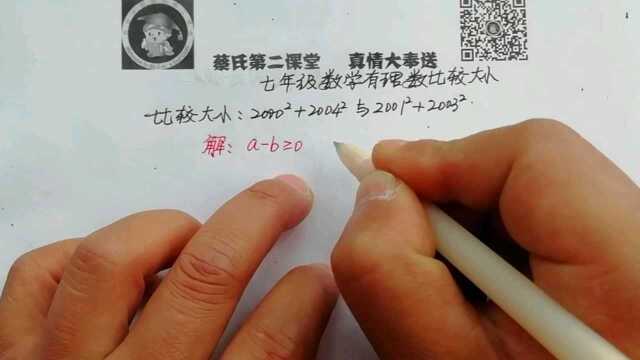 蔡氏第二课堂 真情大奉送
七年级数学有理数比较大小
比较大小：2000²+2004²与2001²+2003².
解：a-b≥0